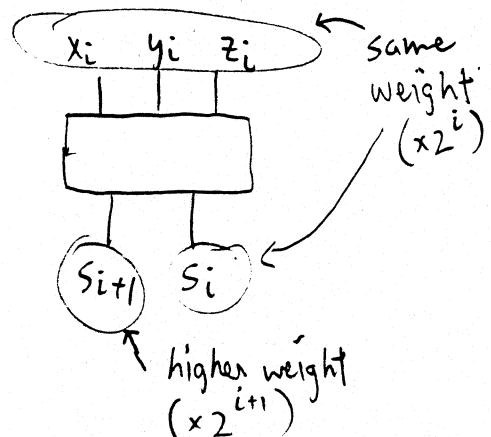 xi yi zi
same
weight
(x2^i)
Si+1 Si
higher weight
(x2^i+1)